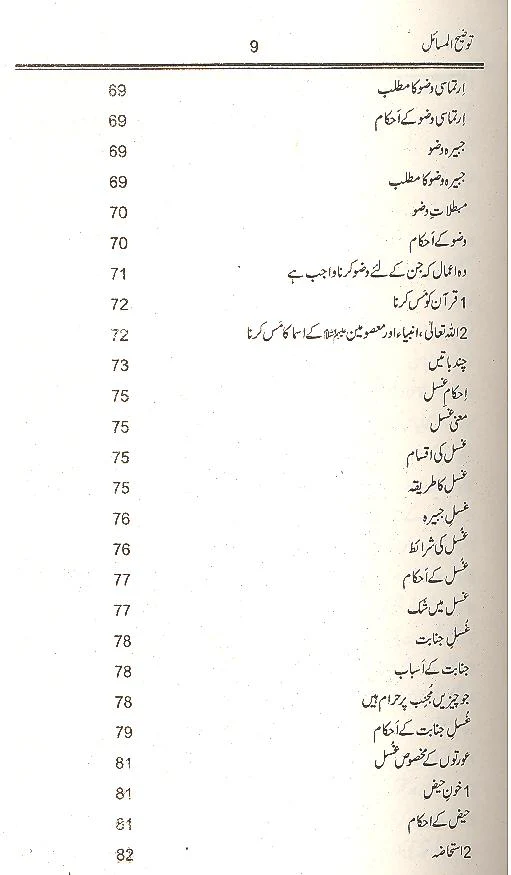 توضیح المسائل 9
اِرتماسی وضو کا مطلب 69
اِرتماسی وضو کے اَحکام 69
جبیرہ وضو 69
جبیرہ وضو کا مطلب 69
مبطلاتِ وضو 70
وضو کے اَحکام 70
وہ اعمال کہ جن کے لئے وضو کرنا واجب ہے 71
1 قرآن کو مَس کرنا 72
2 اللہ تعالٰی، انبیاء اور معصومین کے اسما کا مَس کرنا 72
چند باتیں 73
اِحکامِ غسل 75
معنی غسل 75
غسل کی اقسام 75
غسل کا طریقہ 75
غسلِ جبیرہ 76
غُسل کی شرائط 76
غُسل کے اَحکام 77
غسل میں شک 77
غُسلِ جنابت 78
جنابت کے اَسباب 78
جو چیزیں مُجنِب پر حرام ہیں 78
غُسل جنابت کے اَحکام 79
عورتوں کے مخصوص غُسل 81
1 خونِ حیض 81
حیض کے احکام 81
2 استحاضہ 82